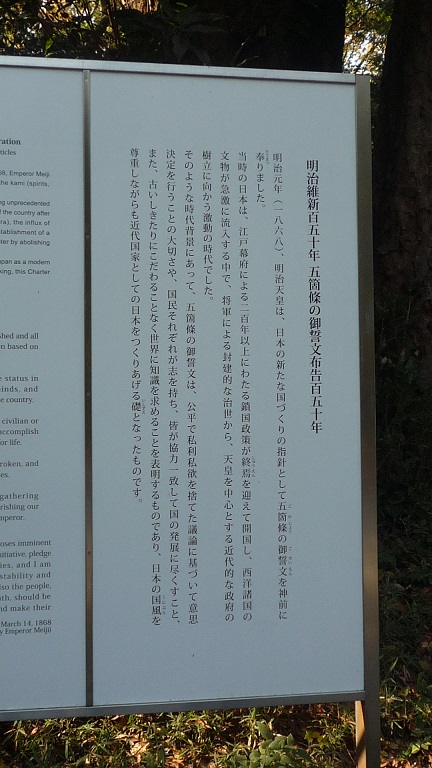 ration
ticles
68, Emperor Meiji
the kami (spirits,
ng unprecedented
f the country after
ra), the influx of
stablishment of a
ter by abolishing
apan as a modern
king, this Charter
shed and all
n based on
e status in
inds, and
e country.
civilian or
accomplish
for life.
roken, and
es.
gathering
rishing our
mperor.
oses imminent
nitiative, pledge
ies, and I am
stability and
lso the people,
ath, should be
nd make their
March 14, 1868
y Emperor Meiji
明治維新百五十年 五箇條の御誓文布告百五十年
明治元年（一八六八）、明治天皇は、日本の新たな国づくりの指針として五箇條の御誓文を神前に
奉りました。
当時の日本は、江戸幕府による二百年以上にわたる鎖国政策が終焉を迎えて開国し、西洋諸国の
文物が急激に流入する中で、将軍による封建的な治世から、天皇を中心とする近代的な政府の
樹立に向かう激動の時代でした。
そのような時代背景にあって、五箇條の御誓文は、公平で私利私欲を捨てた議論に基づいて意思
決定を行うことの大切さや、国民それぞれが志を持ち、皆が協力一致して国の発展に尽くすこと、
また、古いしきたりにこだわることなく世界に知識を求めることを表明するものであり、日本の国風を
尊重しながらも近代国家としての日本をつくりあげる礎となったものです。